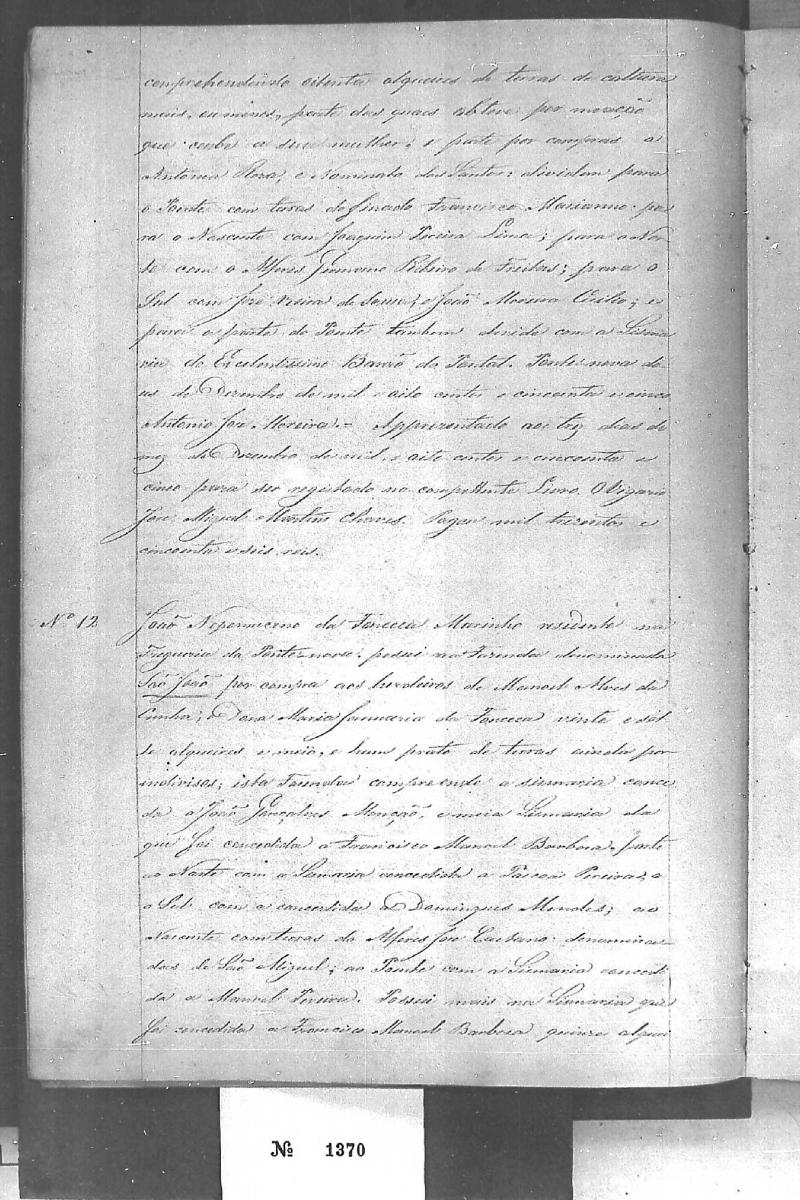 comprehendendo oitenta alqueires de terras de cultura
mais, ou menos, parte das quaes obteve por meação
que coube a sua mulher; e parte por compras a
Antonia Rosa, e Nominato dos Santos: dividem para
o Poente com terras do finado Francisco Marianno: pa
ra o Nascente com Joaquim Pereira Lima; para o Nor
te com o Alferes Germano Ribeiro de Freitas; para o
Sul com José Vieira de Sousa; e João Moreira Cecilio; e
para a parte do Poente tambem devide com a Sisma
ria do Excelentissimo Barão do Pontal. Ponte nova do
us de Dezembro de mil e oito centos e cincoenta e cinco
Antonio José Moreira. = Apprezentado aos trez dias do
mez de Dezembro de mil, e oito centos e cincoenta e
cinco para ser registado no compettente Livro. O Vigario
José Miguel Martins Chaves. Pagou mil trezentos e
cincoenta e seis reis.
Nº 12
João Nepomuceno da Fonceca Marinho residente na
Freguezia da Ponte-nova. possui na Fazenda denominada
São João por compra aos herdeiros de Manoel Alves da
Cunha, e Dona Maria Januaria da Fonceca vinte e set
te alqueires e meio, e hum prato de terras ainda por
indivisos; esta Fazenda comprehende a sismaria conce
da a João Gonçalves Monção, e meia Sismaria da
que foi concedida a Francisco Manoel Barbosa. parte
ao Norte com a Sismaria concedida a Pascoa Pereira; e
o Sul com a concedida a Domingues Mendes; ao
Nascente com terras do Alferes José Caetano denomina
dos de São Miguel; ao Poente com a Sismaria concedi
da a Manoel Pereira. Possui mais na Sismaria que
foi concedida a Francisco Manoel Barbosa quinze alquei
Nº 1370